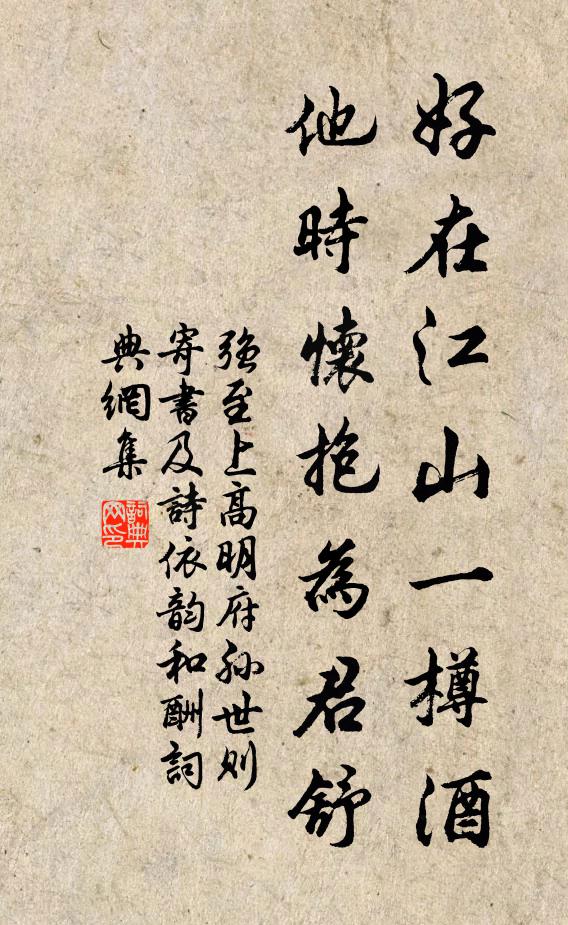 好在江山一樽酒
他時懷抱為君舒
強至上高明府孫世則
寄書及詩依韵和酬詞
典網集
詞典
网印